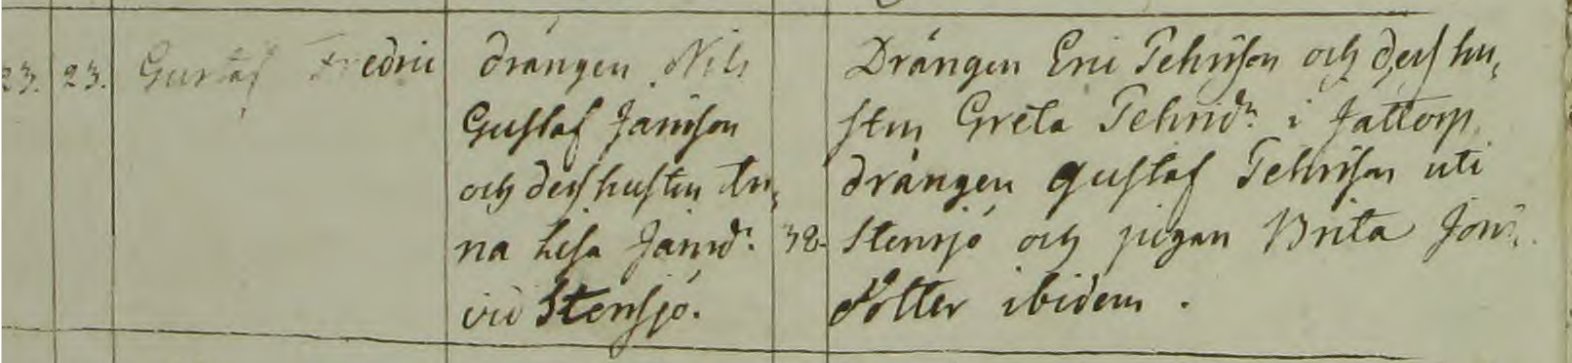 23. 23. Gustaf Fredric
drängen Nils
Gustaf Jansson
och dess hustru An„
na Lisa Jansdr
vid Stensjö.
32.
Drängen Eric Pehrsson och dess hu„
stru Greta Pehrsdr i Jättorp,
drängen Gustaf Pehrsson uti
Stensjö och pigan Brita Jons„
dotter ibidem.